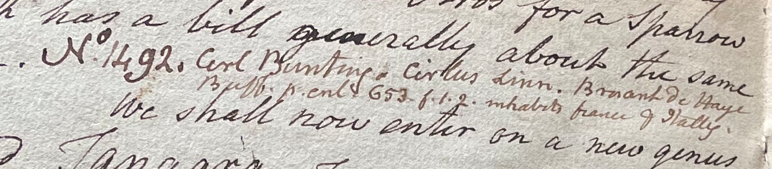 for a Sparrow
has a bill generally about the same
No. 1492. Cerl Bunting. Cirlus Linn. Bruant de Haye
Buff. p. enl. 653. f. 1. 2. inhabits france & Itally.
We shall now enter on a new genus
Tanagra